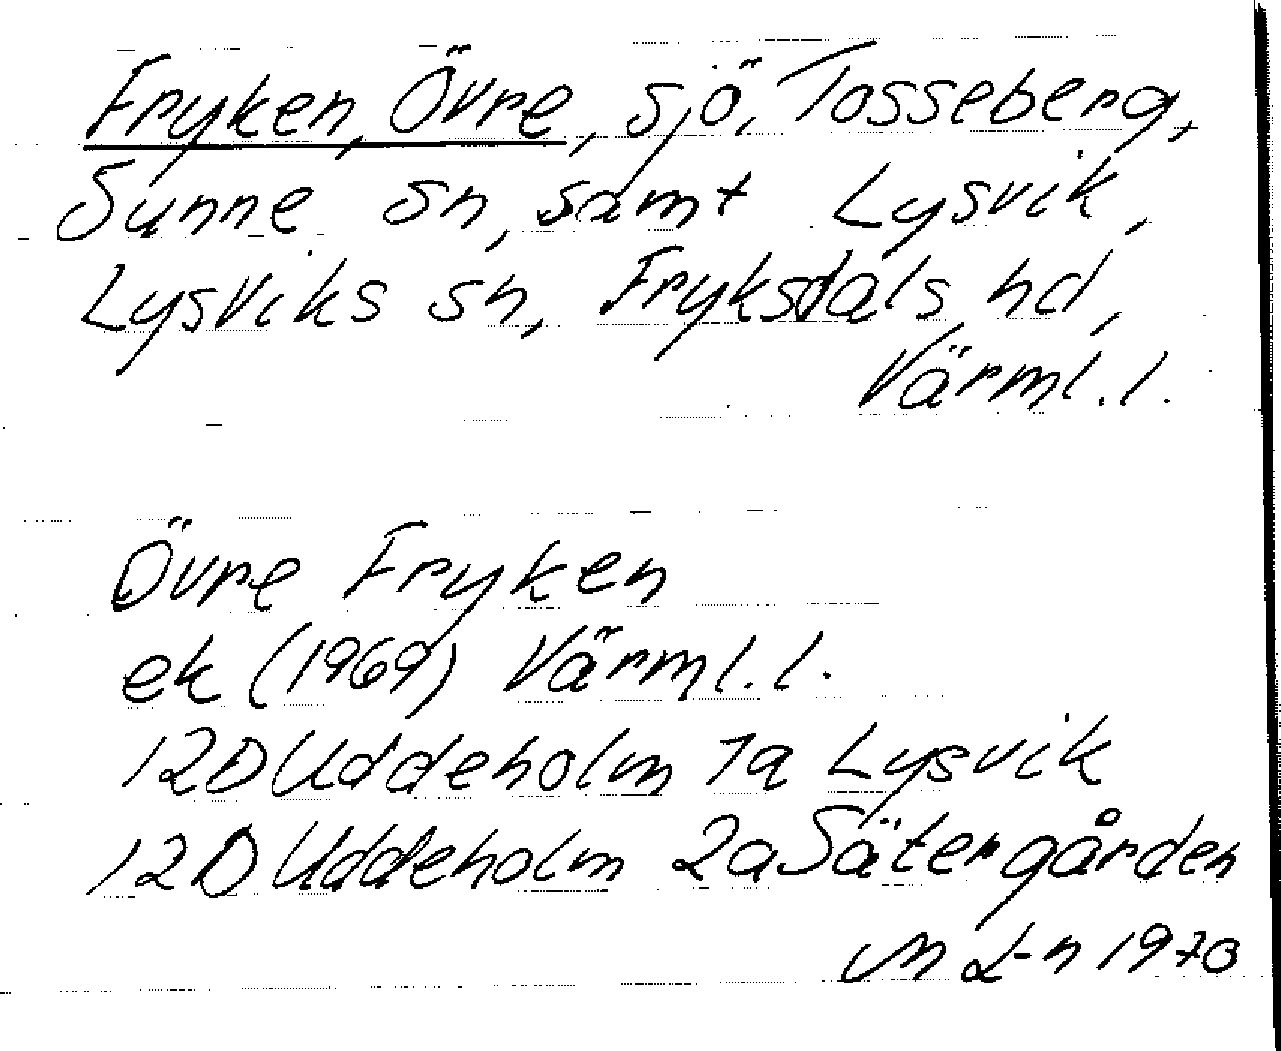 Fryken, Övre, sjö, Tosseberg,
Sunne sn, samt Lysvik,
Lysviks sn, Fryksdals hd,
Värml. l.
Övre Fryken
ek (1969) Värml. l.
12D Uddeholm 1a Lysvik
12D Uddeholm 2a Sätergården
M L-n 1970